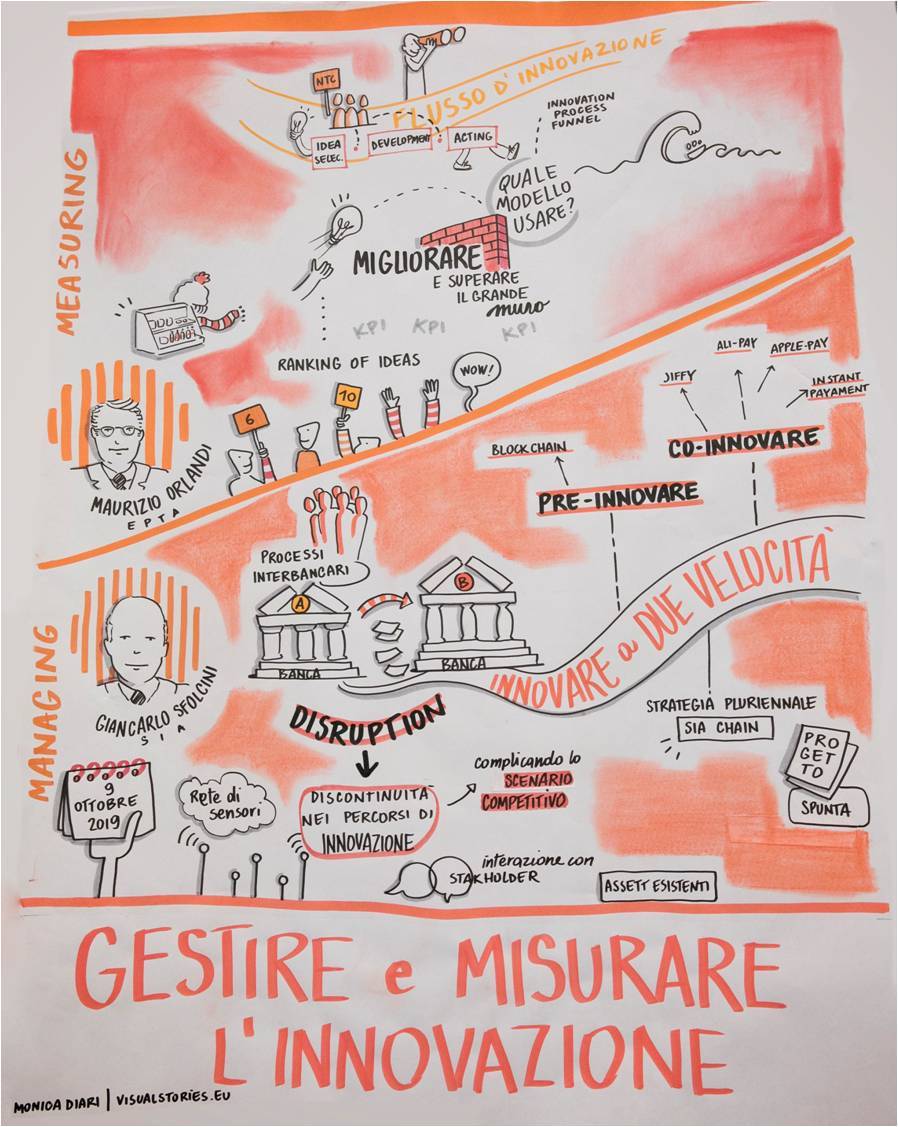 FLUSSO D'INNOVAZIONE
NTC
IDEA
SELEC.
DEVELOPMENT
ACTING
INNOVATION
PROCESS
FUNNEL
QUALE
MODELLO
USARE?
MEASURING
MIGLIORARE
E SUPERARE
IL GRANDE
muro
KPI
KPI
KPI
RANKING OF IDEAS
WOW!
10
6
MAURIZIO ORLANDI
EPTA
JIFFY
ALI-PAY
APPLE-PAY
INSTANT
PAYAMENT
CO-INNOVARE
BLOCKCHAIN
PRE-INNOVARE
PROCESSI
INTERBANCARI
A
BANCA
B
BANCA
INNOVARE a DUE VELOCITÀ
MANAGING
GIANCARLO SFOLCINI
SIA
DISRUPTION
STRATEGIA PLURIENNALE
SIA CHAIN
PRO
GET
TO
SPUNTA
9
OTTOBRE
2019
Rete di
sensori
DISCONTINUITÀ
NEI PERCORSI DI
INNOVAZIONE
complicando lo
SCENARIO
COMPETITIVO
interazione con
STAKHOLDER
ASSETT ESISTENTI
GESTIRE e MISURARE
L'INNOVAZIONE
MONICA DIARI | VISUALSTORIES.EU